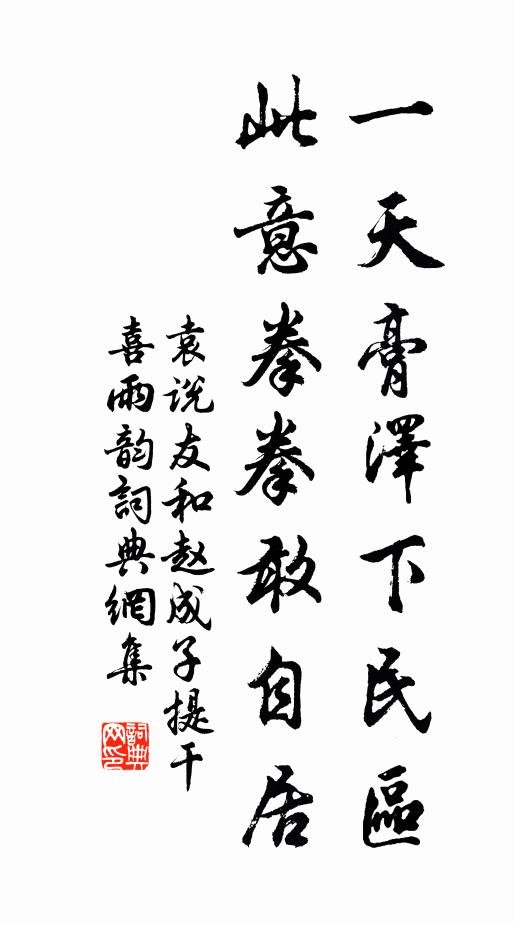 一天膏澤下民區
此意拳拳敢自居
袁説友和赵成子提干
喜雨韵詞典網集
詞典网印